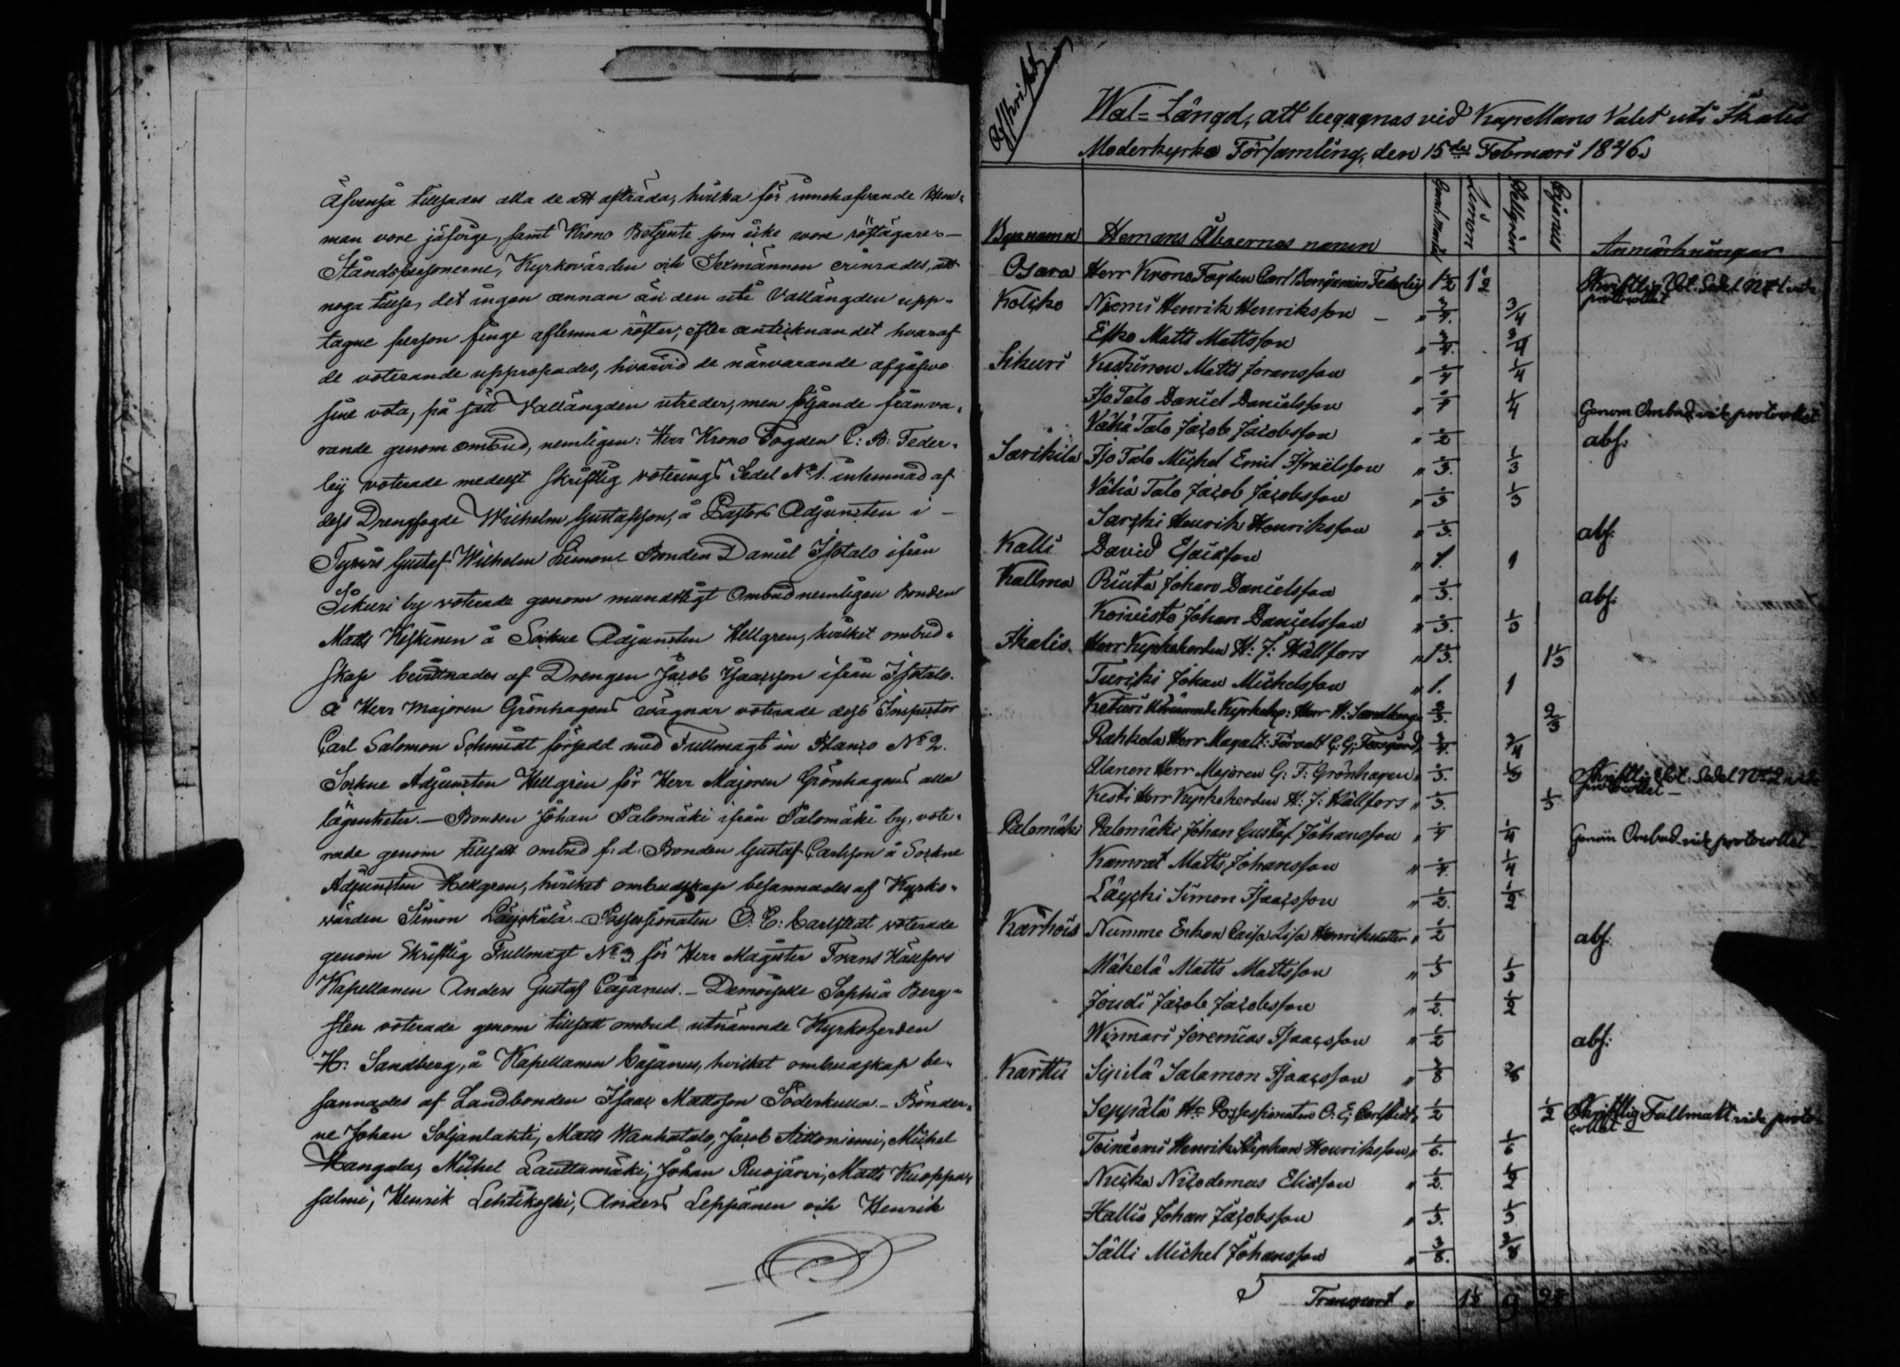 Äfvenså tillsades alla de att afträda, hvilka för innehafvande Hem-
man vore jäfvige, samt Krono Betjente som icke vore röstägare. —
Ståndspersonerne, Kyrkovärden och Sexmännen erinrades, att
noga tillse, det ingen annan än den uti Vallängden upp-
tagne person finge aflemna röster, efter antecknandet hvaraf
de voterande uppropades, hvarvid de närvarande afgåfvo
sine vota, på sätt Vallängden utreder, men följande frånva-
rande genom ombud, nemligen: Herr Krono Fogden C: B: Feder-
ley voterade medelst skriftlig voterings Sedel No 1. inlemnad af
dess Drengfogde Wilhelm Gustafsson, å Pastors Adjuncten i —
Tyrvis Gustaf Wilhelm Limon Bonden Daniel Isotalo ifrån
Sikuri by voterade genom mundtligt Ombud nemligen Bonden
Matts Keskinen å Sockne Adjuncten Hellgren, hvilket ombud-
skap bevittnades af Drengen Jacob Isaacsson ifrån Isotalo.
å Herr Majoren Grönhagens vägnar voterade dess Inspector
Carl Salomon Schmidt försedd med Fullmagt in Blanco No 2.
Sockne Adjuncten Hellgren för Herr Majoren Grönhagens alla
lägenheter. — Bonden Johan Palomäki ifrån Palomäki by, vote-
rade genom tillsatt ombud f. d. Bonden Gustaf Carlsson å Sockne
Adjuncten Hellgren, hvilket ombudskap besannades af Kyrko-
värden Simon Läyskälä. — Possessionaten O. E. Carlstedt voterade
genom Skriftlig Fullmagt No 3 för Herr Magister Frans Hällfors
Kapellanen Anders Gustaf Cajanus. — Demoiselle Sophia Berg-
sten voterade genom tillsatt ombud utnämnde Kyrkoherden
H: Sandberg, å Kapellanen Cajanus, hvilket ombudskap be-
sannades af Landbonden Isaac Mattsson Söderkulla. — Bönder-
ne Johan Soljanlahti, Matts Wanhatalo, Jacob Aittoniemi, Michel
Mangala, Michel Lauttamäki, Johan Ruojärvi, Matts Kuoppa-
salmi, Henrik Lehtikoski, Anders Leppänen och Henrik
Affskrift
Wal-Längd, att begagnas vid Kapellans Valet uti Ikalis
Moderkyrko Församling, den 15de Februari 1846.
Byanamn Hemans Åboernes namn Limon Hellgren Cajanus Anmärkningar
Osara Herr Krono Fogden Carl Benjamin Federley 1 1/2 1 1/2 Skriftlig Vot. Sedel No 1 vide protocollet
Kolcko Niemi Henrik Henriksson — " 3/4. 3/4
Esko Matts Mattsson " 3/4. 3/4
Sikuri Keskinen Matts Joransson " 1/4 1/4
Iso Talo Daniel Danielsson " 1/4 1/4 Genom Ombud vide protocollet
Vähä Talo Jacob Jacobsson " 1/2 abs:
Sarikila Iso Talo Michel Emil Israëlsson " 1/3. 1/3
Vähä Talo Jacob Jacobsson " 1/3 1/3
Sarcki Henrik Henriksson " 1/3. abs.
Kalli David Esaiasson " 1. 1
Kallma Ruita Johan Danielsson " 1/3. abs.
Koivisto Johan Danielsson " 1/3. 1/3
Ikalis. Herr Kyrkoherden H: J: Hällfors " 1 1/3. 1 1/3
Turcki Johan Michelsson " 1. 1
Keturi Utnämnde Kyrkohr: Herr H: Sandberg " 2/3. 2/3
Rahkola Herr Magatt: Förvalt: G: G: 3/4. 3/4
Alanen Herr Majoren G: F: Grönhagen " 1/3. 1/3 Skriftlig Vot. Sedel No 2 vide protocollet —
Kesti Herr Kyrkoherden H: J: Hällfors " 1/3. 1/3
Palomäki Palomäki Johan Gustaf Johansson " 1/4 1/4 Genom Ombud vide protocollet
Kamrat Matts Johansson " 1/4. 1/4
Läycki Simon Isaacsson " 1/2. 1/2
Karhois Numme Enkan Caisa Lisa Henriksdotter " 1/2 abs:
Mäkelä Matts Mattsson " 1/3 1/3
Joudi Jacob Jacobsson " 1/2. 1/2
Winnari Jeremias Isaacsson " 1/2 abs:
Karttu Sipilä Salamon Isaacsson " 3/8 3/8
Seppälä Hr Possessionaten O: E: Carlstedt " 1/2 1/2 Skriftlig Fullmakt vide protocollet —
Toiniemi Henrik Stephan Henriksson " 1/6. 1/6
Nucka Nicodemus Eliasson " 1/2. 1/2
Hallis Johan Jacobsson " 1/3. 1/3
Sälli Michel Johansson " 3/8. 3/8
Transport " 1 1/2 9